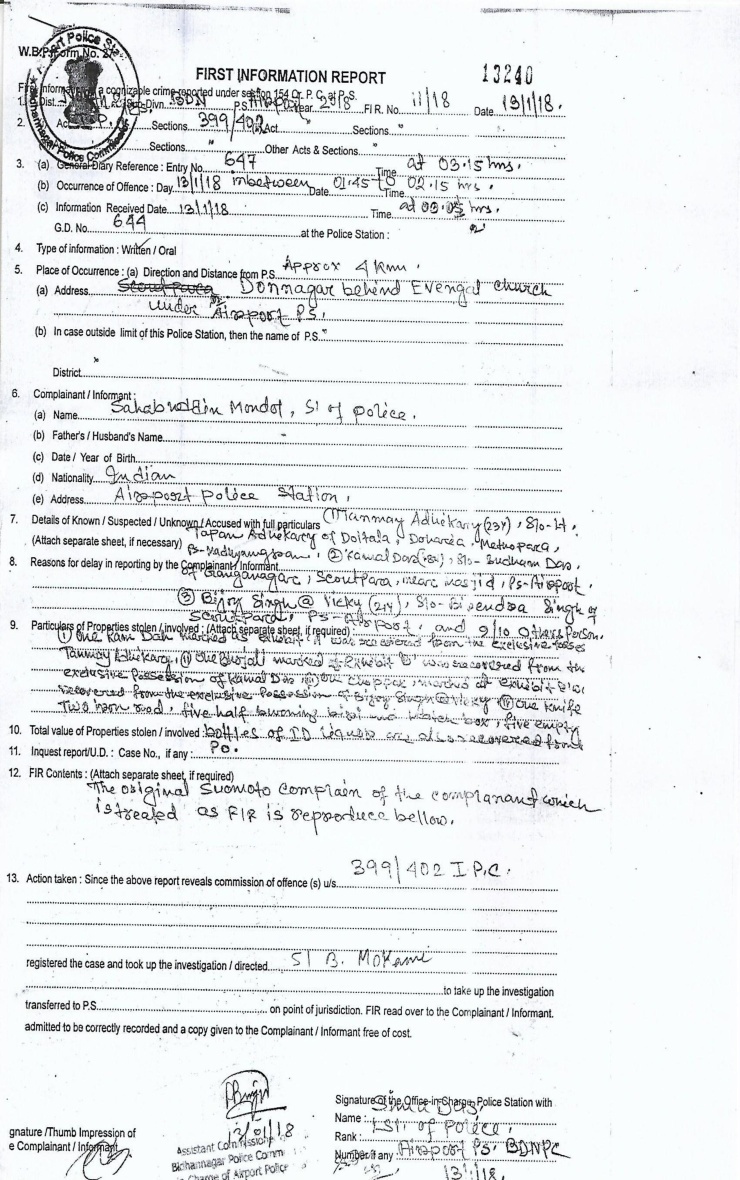 W.B.P. Form No. 27
FIRST INFORMATION REPORT
13240
First Information of a cognizable crime reported under section 154 Cr. P. C. at P.S.
1. Dist. Sub-Divn. BDN P.S. Airport Year 2018 F.I.R. No. 11/18 Date 13/1/18.
2. Act Sections 399/402 Act Sections "
Sections " Other Acts & Sections "
3. (a) General Diary Reference : Entry No. 647 Time at 03.15 hrs.
(b) Occurrence of Offence : Day 13/1/18 inbetween Date 01.45 to Time 02.15 hrs.
(c) Information Received Date 13/1/18 Time at 03.05 hrs.
G.D. No. 644 at the Police Station :
4. Type of information : Written / Oral
5. Place of Occurrence : (a) Direction and Distance from P.S. Approx 4 km.
(a) Address Scout Para Donnagar behind Evengal church
under Airport PS.
(b) In case outside limit of this Police Station, then the name of P.S. "
District "
6. Complainant / Informant :
(a) Name Sahabuddin Mondol, SI of police.
(b) Father's / Husband's Name -
(c) Date / Year of Birth
(d) Nationality Indian
(e) Address Airport police Station.
7. Details of Known / Suspected / Unknown / Accused with full particulars (1) Tanmay Adhikary (23Y), S/o- Lt.
(Attach separate sheet, if necessary) Tapan Adhikary of Doltala, Doharia, Metropara,
8. Reasons for delay in reporting by the Complainant / Informant
P- Madhyamgram, (2) Kamal Das, S/o- Sudham Das
of Ganganagar, Scoutpara, near masjid, Ps- Airport,
(3) Bijoy Singh @ Vicky (21Y), S/o- Birendra Singh of
Scoutpara, PS- Airport, and 9/10 Others Person.
9. Particulars of Properties stolen / involved : (Attach separate sheet, if required)
(i) One Ram Dah marked as exhibit 'A' was recovered from the exclusive posses
Tanmay Adhikary, (ii) One Bhojali marked as Exhibit 'B' was recovered from the
exclusive Possession of Kamal Das (iii) One chopper marked at exhibit 'C' was
recovered from the exclusive Possession of Bijoy Singh @ Vicky (iv) One knife
Two iron rod, five half burning bidi and match box, five empty
10. Total value of Properties stolen / involved : bottles of ID liquor are also recovered from
11. Inquest report/U.D. : Case No., if any : Po.
12. FIR Contents : (Attach separate sheet, if required)
The original Suomoto Complain of the complanant which
is treated as FIR is reproduce bellow.
13. Action taken : Since the above report reveals commission of offence (s) u/s. 399/402 I.P.C.
registered the case and took up the investigation / directed SI B. Mokami
to take up the investigation
transferred to P.S. on point of jurisdiction. FIR read over to the Complainant / Informant.
admitted to be correctly recorded and a copy given to the Complainant / Informant free of cost.
13/01/18
gnature /Thumb Impression of
e Complainant / Informant
Assistant Commissioner
Bidhannagar Police Comm
Charge of Airport Police
Signature of the Office-in-Charge, Police Station with
Name : Das,
Rank : SI of Police.
Number if any : Airport PS. BDNPC
13/1/18.